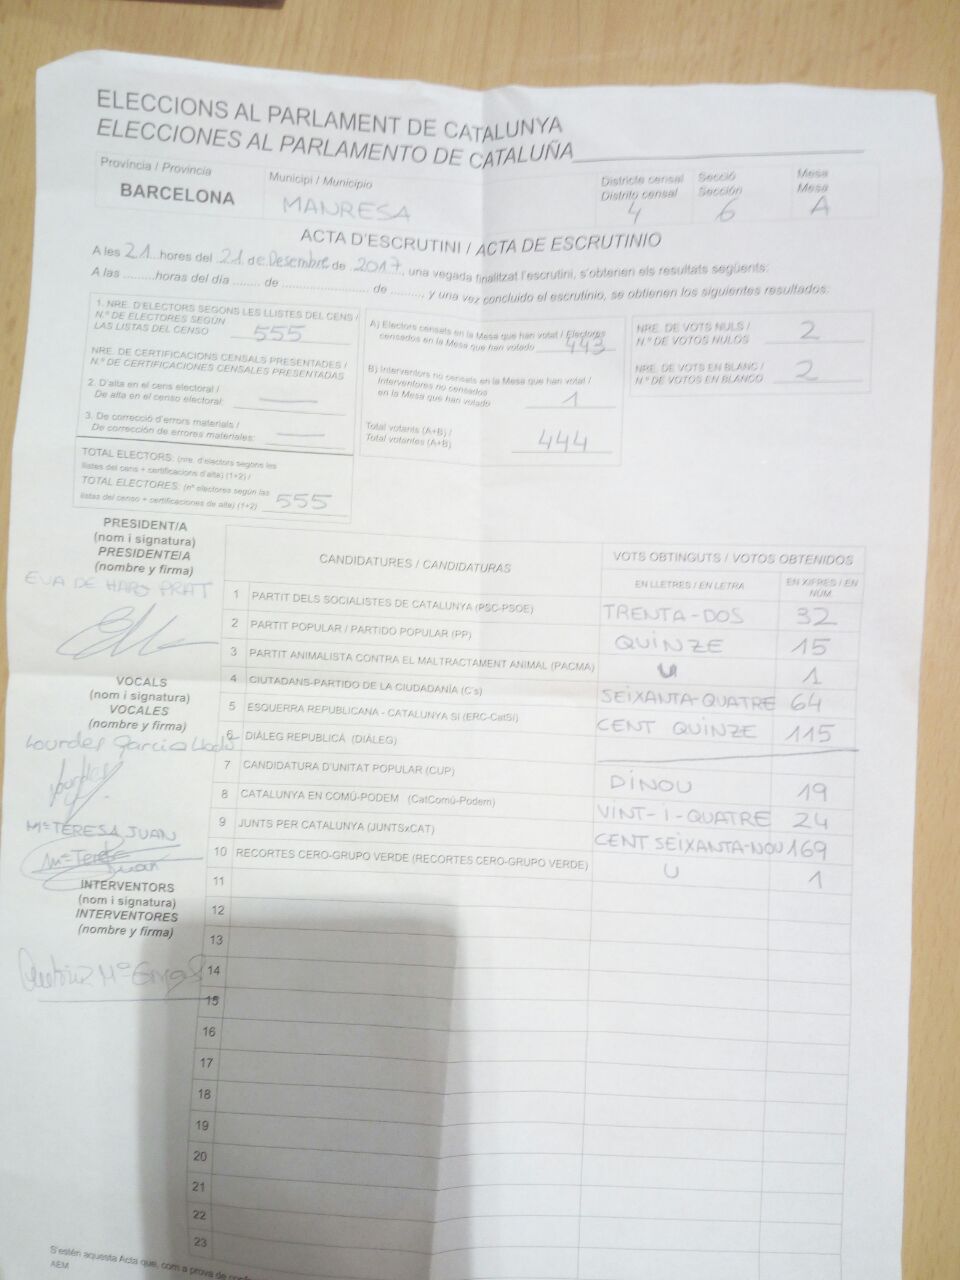 ELECCIONS AL PARLAMENT DE CATALUNYA
ELECCIONES AL PARLAMENTO DE CATALUÑA
Província / Provincia
BARCELONA
Municipi / Municipio
MANRESA
Districte censal
Distrito censal
4
Secció
Sección
6
Mesa
Mesa
A
ACTA D'ESCRUTINI / ACTA DE ESCRUTINIO
A les 21 hores del 21 de Desembre de 2017, una vegada finalitzat l'escrutini, s'obtenen els resultats següents:
A las .........horas del día ........ de ........................ de ........., y una vez concluido el escrutinio, se obtienen los siguientes resultados:
1. NRE. D'ELECTORS SEGONS LES LLISTES DEL CENS /
N.º DE ELECTORES SEGÚN
LAS LISTAS DEL CENSO 555
NRE. DE CERTIFICACIONS CENSALS PRESENTADES /
N.º DE CERTIFICACIONES CENSALES PRESENTADAS
2. D'alta en el cens electoral /
De alta en el censo electoral: —
3. De correcció d'errors materials /
De corrección de errores materiales: —
TOTAL ELECTORS: (nre. d'electors segons les
llistes del cens + certificacions d'alta) (1+2) /
TOTAL ELECTORES: (nº electores según las
listas del censo + certificaciones de alta) (1+2) 555
A) Electors censats en la Mesa que han votat / Electores
censados en la Mesa que han votado 443
B) Interventors no censats en la Mesa que han votat /
Interventores no censados
en la Mesa que han votado 1
Total votants (A+B) /
Total votantes (A+B) 444
NRE. DE VOTS NULS /
N.º DE VOTOS NULOS 2
NRE. DE VOTS EN BLANC /
N.º DE VOTOS EN BLANCO 2
PRESIDENT/A
(nom i signatura)
PRESIDENTE/A
(nombre y firma)
EVA DE HARO PRAT
VOCALS
(nom i signatura)
VOCALES
(nombre y firma)
Lourdes Garcia
Mª TERESA JUAN
Mª Teresa
Juan
INTERVENTORS
(nom i signatura)
INTERVENTORES
(nombre y firma)
CANDIDATURES / CANDIDATURAS
VOTS OBTINGUTS / VOTOS OBTENIDOS
EN LLETRES / EN LETRA
EN XIFRES / EN NÚM.
1 PARTIT DELS SOCIALISTES DE CATALUNYA (PSC-PSOE) TRENTA-DOS 32
2 PARTIT POPULAR / PARTIDO POPULAR (PP) QUINZE 15
3 PARTIT ANIMALISTA CONTRA EL MALTRACTAMENT ANIMAL (PACMA) U 1
4 CIUTADANS-PARTIDO DE LA CIUDADANÍA (C's) SEIXANTA-QUATRE 64
5 ESQUERRA REPUBLICANA - CATALUNYA SÍ (ERC-CatSí) CENT QUINZE 115
6 DIÀLEG REPUBLICÀ (DIÀLEG)
7 CANDIDATURA D'UNITAT POPULAR (CUP) DINOU 19
8 CATALUNYA EN COMÚ-PODEM (CatComú-Podem) VINT-I-QUATRE 24
9 JUNTS PER CATALUNYA (JUNTSxCAT) CENT SEIXANTA-NOU 169
10 RECORTES CERO-GRUPO VERDE (RECORTES CERO-GRUPO VERDE) U 1
11
12
13
14
15
16
17
18
19
20
21
22
23
S'estén aquesta Acta que, com a prova de
AEM